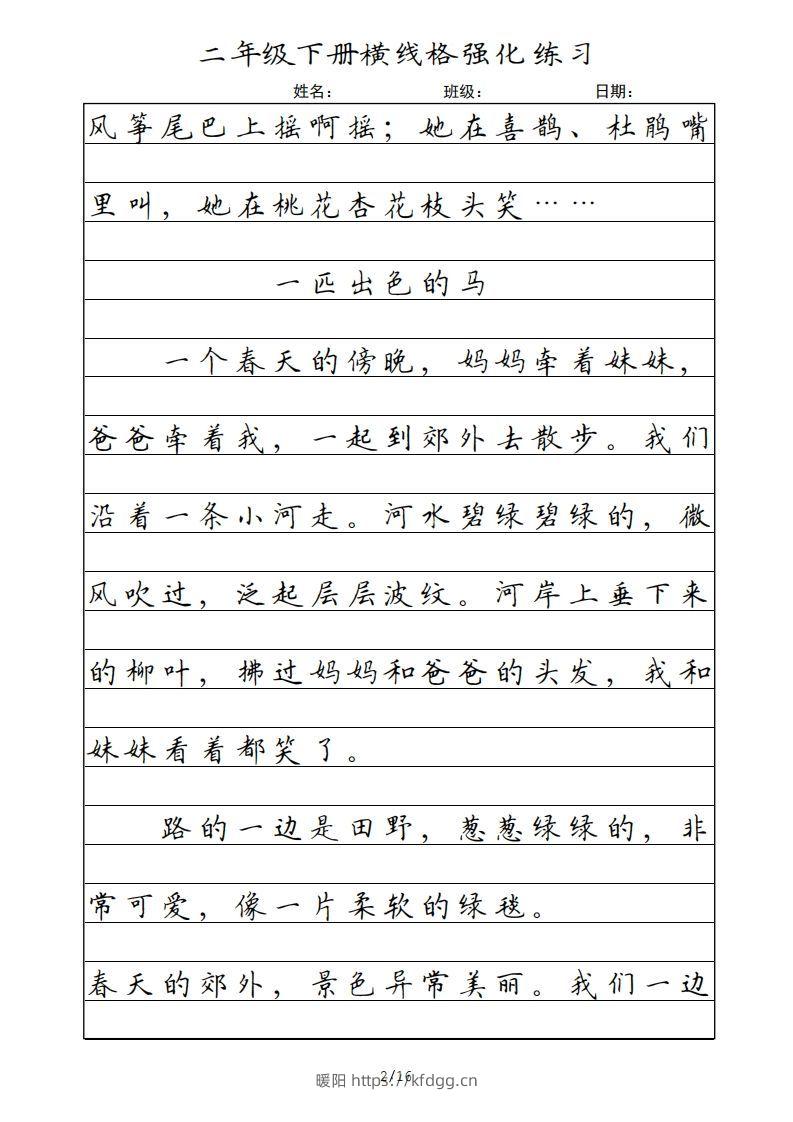 二年级下册横线格强化练习
姓名: 班级: 日期:
风筝尾巴上摇啊摇；她在喜鹊、杜鹃嘴
里叫，她在桃花杏花枝头笑……
一匹出色的马
一个春天的傍晚，妈妈牵着妹妹，
爸爸牵着我，一起到郊外去散步。我们
沿着一条小河走。河水碧绿碧绿的，微
风吹过，泛起层层波纹。河岸上垂下来
的柳叶，拂过妈妈和爸爸的头发，我和
妹妹看着都笑了。
路的一边是田野，葱葱绿绿的，非
常可爱，像一片柔软的绿毯。
春天的郊外，景色异常美丽。我们一边
2/16
暖阳 https://kfdgg.cn